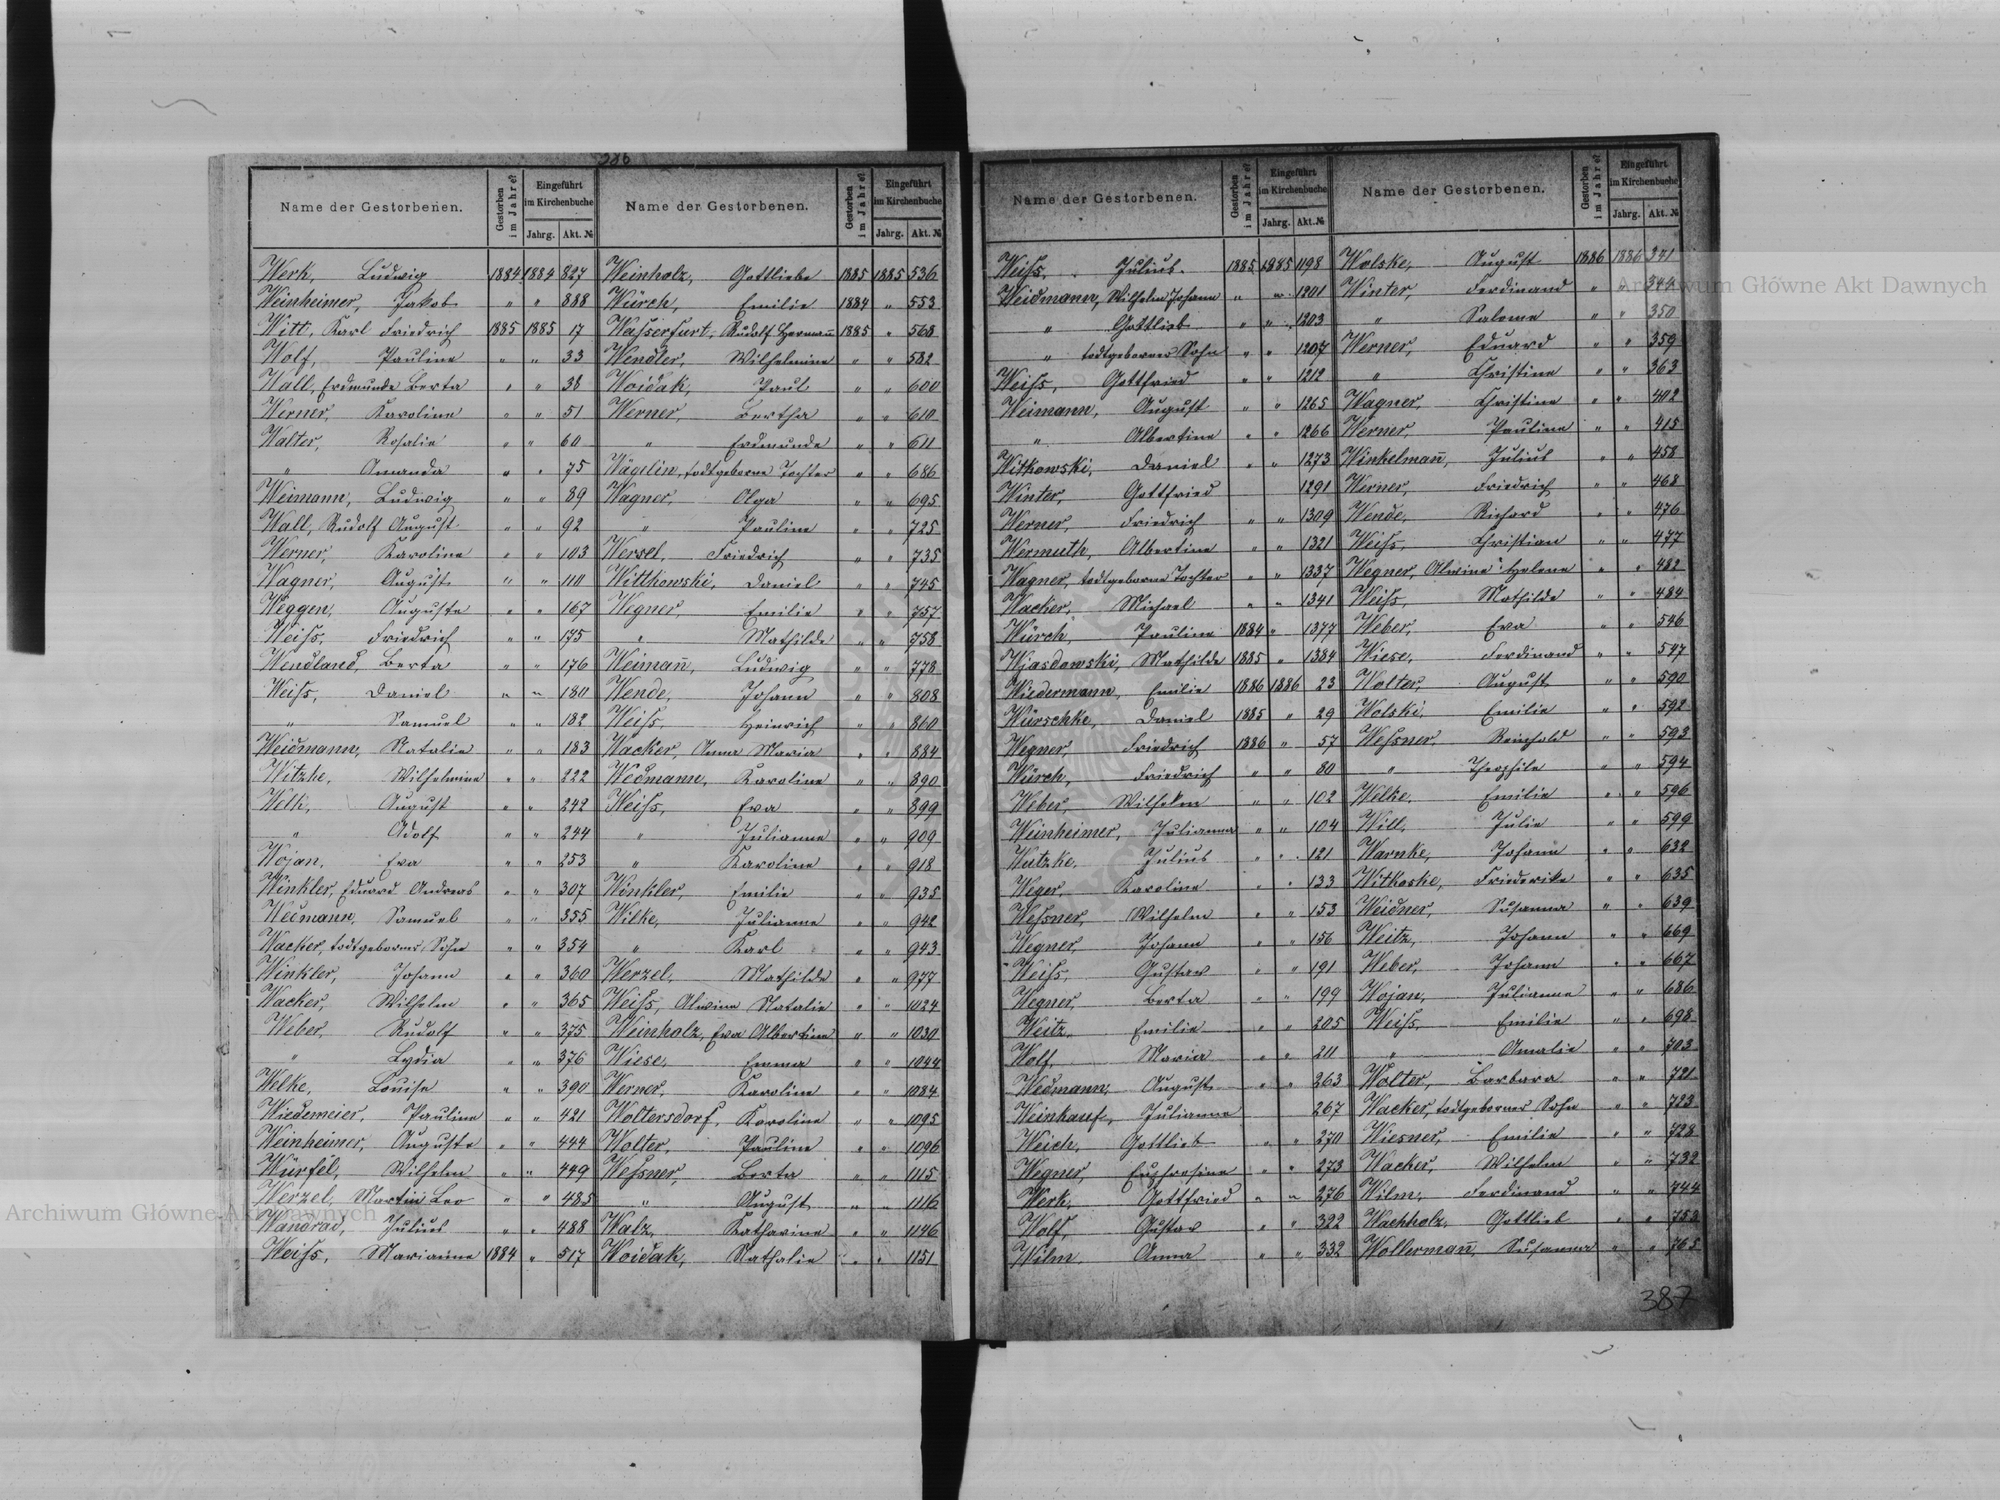 386
Name der Gestorbenen. Gestorben im Jahre? Eingeführt im Kirchenbuche Jahrg. Akt. №
Werk, Ludwig 1884 1884 827
Weinheimer, Jakob " " 888
Witt, Karl Friedrich 1885 1885 17
Wolf, Pauline " " 33
Wall, Erdmunde Berta " " 38
Werner, Karoline " " 51
Walter, Rosalie " " 60
" Amanda " " 75
Weimann, Ludwig " " 89
Wall, Rudolf August " " 92
Werner, Karoline " " 103
Wagner, August " " 110
Weggen, Auguste " " 167
Weiss, Friedrich " " 175
Wendland, Berta " " 176
Weiss, Daniel " " 180
" Samuel " " 182
Weidmann, Natalie " " 183
Witzke, Wilhelmine " " 222
Welk, August " " 242
" Adolf " " 244
Wojan, Eva " " 253
Winkler, Eduard Andreas " " 307
Wedmann, Samuel " " 355
Wacker, todtgeborner Sohn " " 354
Winkler, Johann " " 360
Wacker, Wilhelm " " 365
Weber, Rudolf " " 375
" Lydia " " 376
Welke, Louise " " 390
Wiedemeier, Pauline " " 421
Weinheimer, Auguste " " 444
Würfel, Wilhelm " " 449
Werzel, Martin Leo " " 485
Wandrad, Julius " " 488
Weiss, Marianne 1884 " 517
Name der Gestorbenen. Gestorben im Jahre? Eingeführt im Kirchenbuche Jahrg. Akt. №
Weinholz, Gottliebe 1885 1885 536
Würch, Emilie 1884 " 553
Wasserfurt, Rudolf Hermann̄ 1885 " 568
Wendler, Wilhelmine " " 582
Woidak, Paul " " 600
Werner, Bertha " " 610
" Erdmunde " " 611
Wägelin, todtgeborne Tochter " " 686
Wagner, Olga " " 695
" Pauline " " 725
Wersel, Friedrich " " 735
Witthowski, Daniel " " 745
Wegner, Emilie " " 757
" Mathilde " " 758
Weiman̄, Ludwig " " 778
Wende, Johann " " 808
Weiss, Heinrich " " 860
Wacker, Anna Maria " " 884
Wedmann, Karoline " " 890
Weiss, Eva " " 899
" Julianne " " 909
" Karoline " " 918
Winkler, Emilie " " 935
Wilke, Julianne " " 942
" Karl " " 943
Werzel, Mathilde " " 977
Weiss, Alwine Natalie " " 1024
Weinholz, Eva Albertine " " 1030
Wiese, Emma " " 1044
Werner, Karoline " " 1084
Woltersdorf, Karoline " " 1095
Wolter, Pauline " " 1096
Wessner, Berta " " 1115
" August " " 1116
Walz, Katharine " " 1146
Woidak, Nathalie " " 1151
Name der Gestorbenen. Gestorben im Jahre? Eingeführt im Kirchenbuche Jahrg. Akt. №
Weiss, Julius 1885 1885 1198
Weidmann, Wilhelm Johann " " 1201
" Gottlieb " " 1203
" todtgeborner Sohn " " 1207
Weiss, Gottfried " " 1212
Weimann, August " " 1265
" Albertine " " 1266
Witkowski, Daniel " " 1273
Winter, Gottfried 1291
Werner, Friedrich " " 1309
Wermuth, Albertine " " 1321
Wagner, todtgeborne Tochter " " 1337
Wacker, Michael " " 1341
Würch, Pauline 1884 " 1377
Wjasdowski, Mathilde 1885 " 1384
Wiedermann, Emilie 1886 1886 23
Würschke, Daniel 1885 " 29
Wegner, Friedrich 1886 " 57
Würch, Friedrich " " 80
Weber, Wilhelm " " 102
Weinheimer, Julianna " " 104
Wutzke, Julius " " 121
Weger, Karoline " " 133
Wessner, Wilhelm " " 153
Wegner, Johann " " 156
Weiss, Gustav " " 191
Wegner, Berta " " 199
Weitz, Emilie " " 205
Wolf, Maria " " 211
Wedmann, August " " 263
Weinkauf, Julianne 267
Weich, Gottlieb " " 270
Wegner, Euphrosine " " 273
Werk, Gottfried " " 276
Wolf, Gustav " " 322
Wilm, Anna " " 332
Name der Gestorbenen. Gestorben im Jahre? Eingeführt im Kirchenbuche Jahrg. Akt. №
Wolske, August 1886 1886 341
Winter, Ferdinand " " 344
" Salome " " 350
Werner, Eduard " " 359
" Christine " " 363
Wagner, Christine " " 402
Werner, Pauline " " 415
Winkelman̄, Julius " " 458
Werner, Friedrich " " 468
Wende, Richard " " 476
Weiss, Christian " " 477
Wegner, Alwine Helene " " 482
Weiss, Mathilde " " 484
Weber, Eva " " 546
Wiese, Ferdinand " " 547
Wolter, August " " 590
Wolski, Emilie " " 592
Wessner, Reinhold " " 593
" Theophile " " 594
Welke, Emilie " " 596
Will, Julie " " 599
Warnke, Johann " " 632
Witkoske, Friederike " " 635
Weidner, Susanna " " 639
Weitz, Johann " " 669
Weber, Johann " " 667
Wojan, Julianne " " 686
Weiss, Emilie " " 698
" Amalie " " 703
Wolter, Barbara " " 721
Wacker, todtgeborner Sohn " " 723
Wiesner, Emilie " " 728
Wacker, Wilhelm " " 732
Wilm, Ferdinand " " 744
Wachholz, Gottlieb " " 753
Wollerman̄, Susanna " " 765
387
Archiwum Główne Akt Dawnych
Archiwum Główne Akt Dawnych